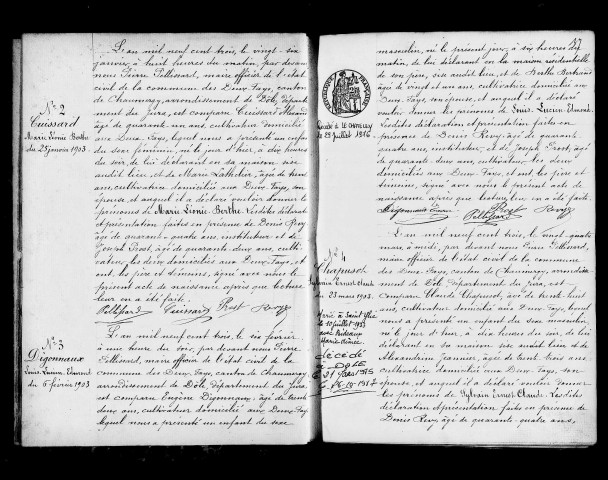 L'an mil neuf cent trois, le vingt-six
janvier, à huit heures du matin, par devant
nous Pierre Pellissard, maire officier de l'état civil
de la commune des Deux-Fays, canton
de Chaumergy, arrondissement de Dôle, Département
du Jura, est comparu
âgé de quarante ans, cultivateur domicilié
aux Deux-Fays, lequel nous a présenté un enfant
du sexe féminin, né le jour d'hier, à dix heures
du soir, de lui déclarant en sa maison sise
audit lieu, et de Marie Lathelier, âgée de trente
ans, cultivatrice domiciliée aux Deux-Fays, son
épouse, et auquel il a déclaré vouloir donner les
prénoms de Marie Léonie Berthe. Lesdites déclaration
et présentation faites en présence de Denis Revy
âgé de quarante-quatre ans, instituteur et de
Joseph Prost, âgé de quarante deux ans, culti-
vateur, les deux domiciliés aux Deux-Fays, et
ont, les père et témoins, signé avec nous le
présent acte de naissance après que lecture
leur en a été faite.
Pellissard Prost Revy
N° 2
Marie Léonie Berthe
du 25 janvier 1903
N° 3
Digonnaux
Louis Lucien Edmond
du 6 février 1903
L'an mil neuf cent trois, le six février
une heure du soir, par devant nous Pierre
Pellissard, maire officier de l'état civil de la
commune des Deux-Fays, canton de Chaumergy,
arrondissement de Dôle, Département du Jura,
est comparu Eugène Digonnaux, âgé de trente
deux ans, cultivateur domicilié aux Deux-Fays
lequel nous a présenté un enfant du sexe
masculin, né le présent jour, à six heures du
matin, de lui déclarant en la maison
de son père, sise audit lieu, et de Berthe Bertrand
âgée de vingt et un ans, cultivatrice domiciliée aux
Deux-Fays, son épouse, et auquel il a déclaré
vouloir donner les prénoms de Louis Lucien Edmond.
Lesdites déclaration et présentation faites en
présence de Denis Revy, âgé de quarante-
quatre ans, instituteur, et de Joseph Prost, âgé
de quarante-deux ans, cultivateur, les deux
domiciliés aux Deux-Fays, et ont, les père et
témoins, signé avec nous le présent acte de
naissance après que lecture leur en a été faite.
Pellissard Prost Revy
Décédé à
le 29 juillet 1916
N° 4
Chapusot
Sylvain Ernest Claude
du 23 mars 1903
Marié à Saint
le 10 juillet 1933
avec
décédé
DOLE
L'an mil neuf cent trois, le vingt-quatre
mars, à midi, par devant nous Pierre Pellissard,
maire officier de l'état civil de la commune
des Deux-Fays, canton de Chaumergy, arrondisse-
ment de Dôle, Département du Jura, est
comparu Claude Chapusot, âgé de trente-huit
ans, cultivateur domicilié aux Deux-Fays, lequel
nous a présenté un enfant du sexe masculin
né le jour d'hier, à deux heures du soir, de lui
déclarant en sa maison sise audit lieu et de
Alexandrine Jeannier, âgée de trente-trois ans
cultivatrice domiciliée aux Deux-Fays, son
épouse, et auquel il a déclaré vouloir donner
les prénoms de Sylvain Ernest Claude. Lesdites
déclaration et présentation faites en présence de
Denis Revy, âgé de quarante-quatre ans,